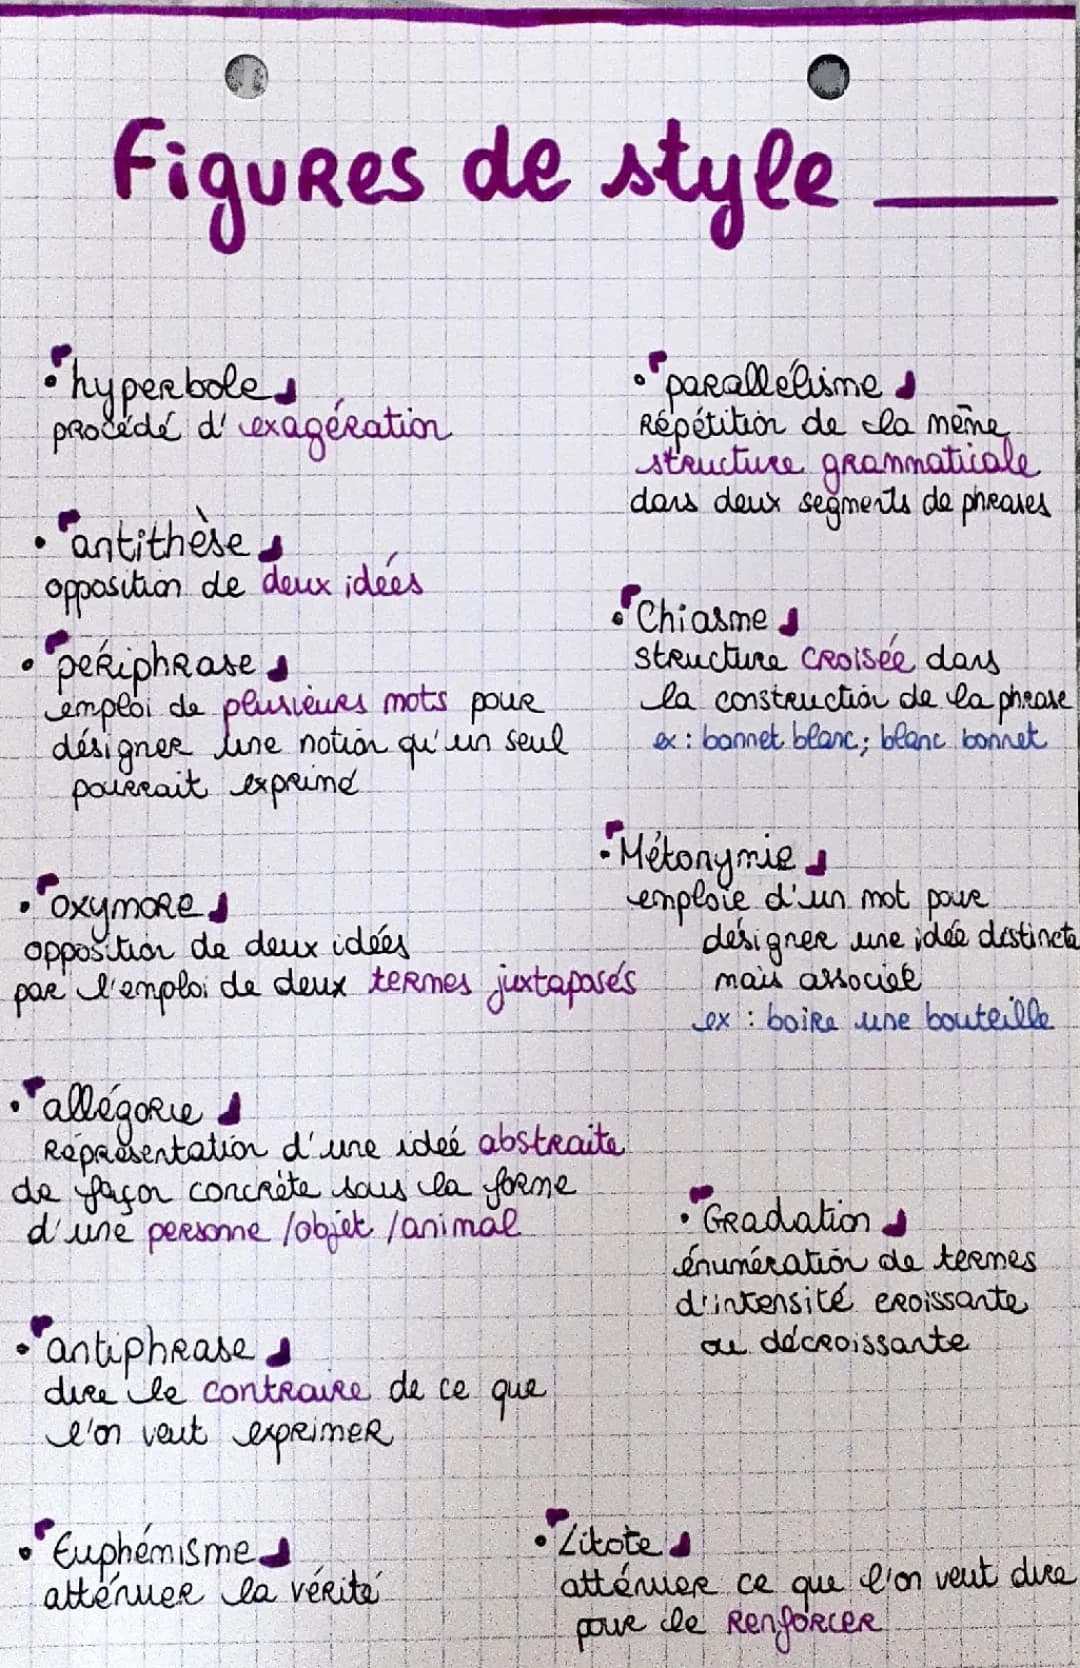 Figures de style
• hyperbole
procédé d'exagération
• antithèse
opposition de deux idées
• périphrase
emploi de plusieurs mots pour
désigner une notion qu'un seul
pourrait exprimé
• oxymore
opposition de deux idées
par l'emploi de deux termes juxtaposés
• allégorie
Représentation d'une idée abstraite
de façon concrète sous la forme
d'une personne /objet /animal
• antiphrase
dire le contraire de ce que
l'on veut exprimer
• Euphémisme
atténuer la vérité
• parallélisme
Répétition de la même
structure grammaticale
dans deux segments de phrases
• Chiasme
structure croisée dans
la construction de la phrase
ex : bonnet blanc; blanc bonnet
• Métonymie
emploie d'un mot pour
désigner une idée distincte
mais associée
ex : boire une bouteille
• Gradation
énumération de termes
d'intensité croissante
ou décroissante
• Litote
atténuer ce que l'on veut dire
pour le Renforcer